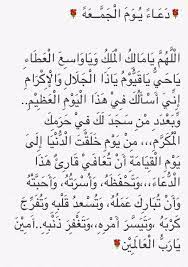 🌹دعَـاءَ يُـومَ الْجُمُـعَـة🌹
اللَّهُمَّ يَامَالكَ الْمُلكَ وَيَاوَاسـعَ الْعَطَاءِ
يَاحَيُّ يَاقَيُّوُمْ يَاذَا الْجَلَالَ وَالْإِكْرَامِ
إِنِّي أَسْأَلُكَ فِيْ هَذَا الْيَوْمِ الْعَظِيْمِ..
وَبعَدَدِ مَنْ سَجَدَ لَكَ فِيْ حَرَمِكَ
الْمُكَرَّمِ،،،، مَنْ يَوْمِ خَلَقْتَ الدُّنْيَا إِلَى
يَوْمِ الْقِيَامَةِ أَنْ تُعَافِيَ قَارِئَ هَذَا
الدُّعَاءَ،،،، وَتَحْفَظَهُ، وَأُسْرَتُهُ، وَأَحبَّتُهُ
وَأَنْ تُبَارِكَ عَمَلُهُ، وَتُسْعدُ قَلْبُهِ وَتُفَرِّجَ
كَرْبَهُ، وَتُيَسِّرَ أَمْرِه،، وَتَغْفِرَ ذَنْبِه...آمِيْنَ
يَارَبُّ الْعَالَمِيْنَ🌹